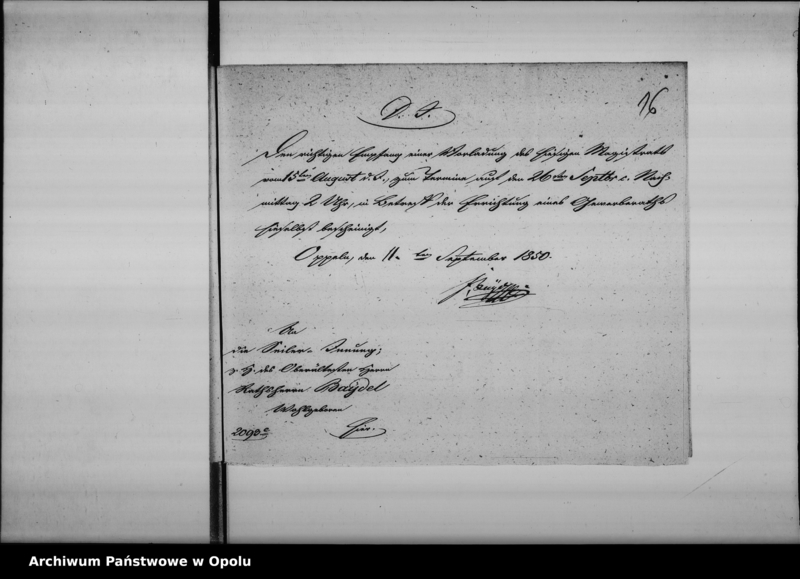 16
D. S.
Den richtigen Empfang einer Vorladung des hiesigen Magistrats
vom 15ten August d. J., zum Termine auf den 26ten Septbr c. Nach-
mittag 2 Uhr, in Betreff der Errichtung eines Gewerberaths
hieselbst bescheinigt,
Oppeln, den 11ten September 1850.
An
die Seiler-Innung,
z. H. des Oberältesten Herrn
Rathsherrn Baydel
Wohlgeboren
2093
Hier.
Archiwum Państwowe w Opolu